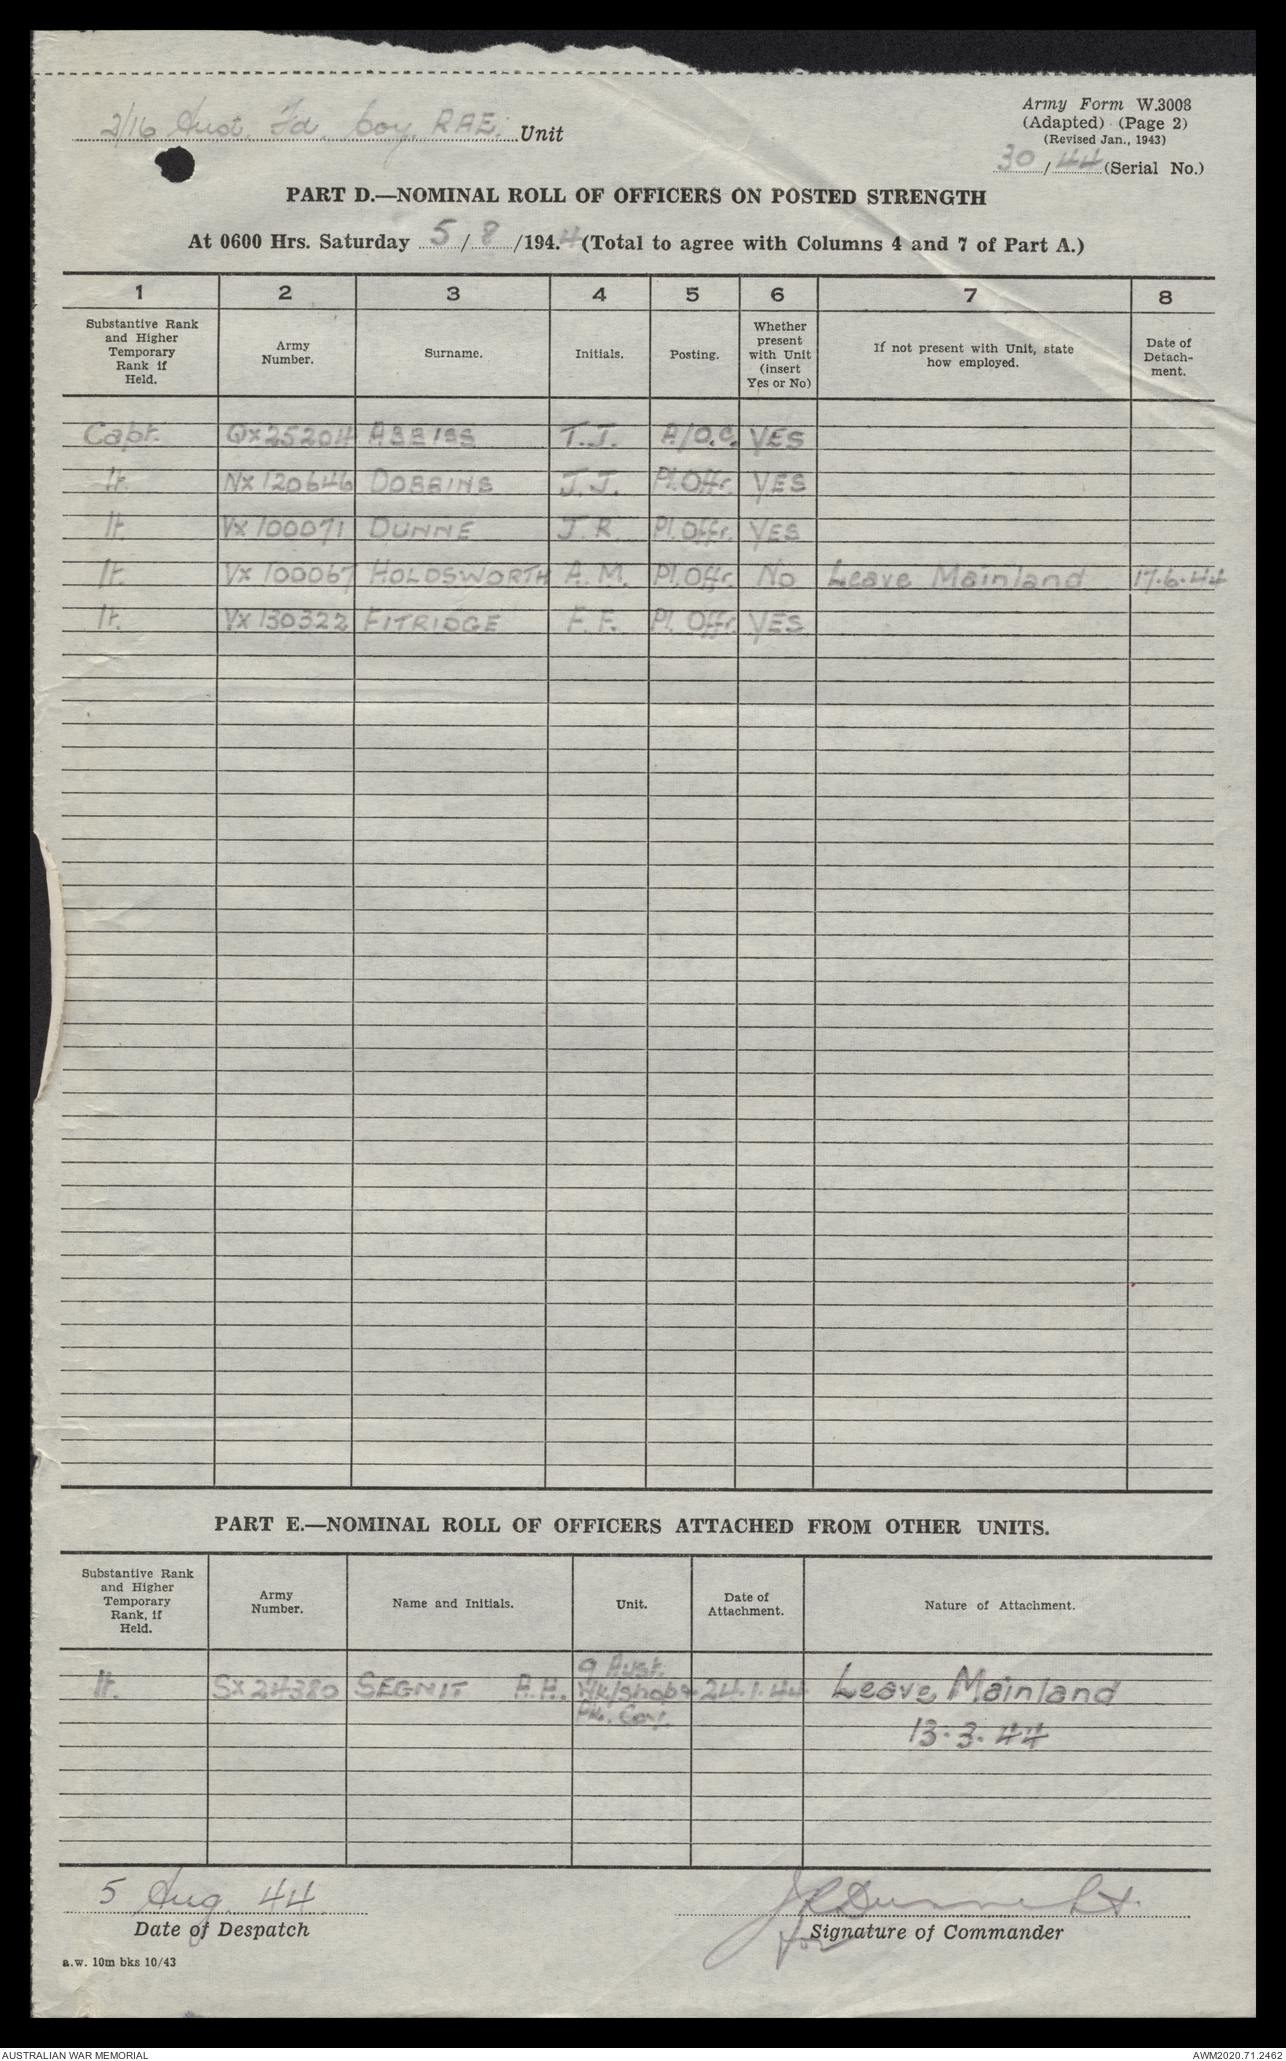 2/16 Aust. Fd. Coy. RAE. Unit
Army Form W.3008
(Adapted) (Page 2)
(Revised Jan., 1943)
30/44 (Serial No.)
PART D.—NOMINAL ROLL OF OFFICERS ON POSTED STRENGTH
At 0600 Hrs. Saturday 5/8/1944 (Total to agree with Columns 4 and 7 of Part A.)
1 2 3 4 5 6 7 8
Substantive Rank and Higher Temporary Rank if Held. Army Number. Surname. Initials. Posting. Whether present with Unit (insert Yes or No) If not present with Unit, state how employed. Date of Detach- ment.
Capt. QX25204 ABBISS T.J. A/O.C. YES
Lt. NX120646 DOBBINS J.J. Pl.Offr. YES
Lt. VX100071 DUNNE J.R. Pl.Offr. YES
Lt. VX100067 HOLDSWORTH A.M. Pl.Offr. No Leave Mainland 17.6.44
Lt. VX130322 FITRIDGE F.F. Pl. Offr. YES
PART E.—NOMINAL ROLL OF OFFICERS ATTACHED FROM OTHER UNITS.
Substantive Rank and Higher Temporary Rank, if Held. Army Number. Name and Initials. Unit. Date of Attachment. Nature of Attachment.
Lt. SX24380 SEGNIT R.H. 9 Aust. Wk/shops Pk. Coy. 24.1.44 Leave Mainland
13.3.44
5 Aug. 44 JRDunne Lt.
Date of Despatch for Signature of Commander
a.w. 10m bks 10/43
AUSTRALIAN WAR MEMORIAL AWM2020.71.2462